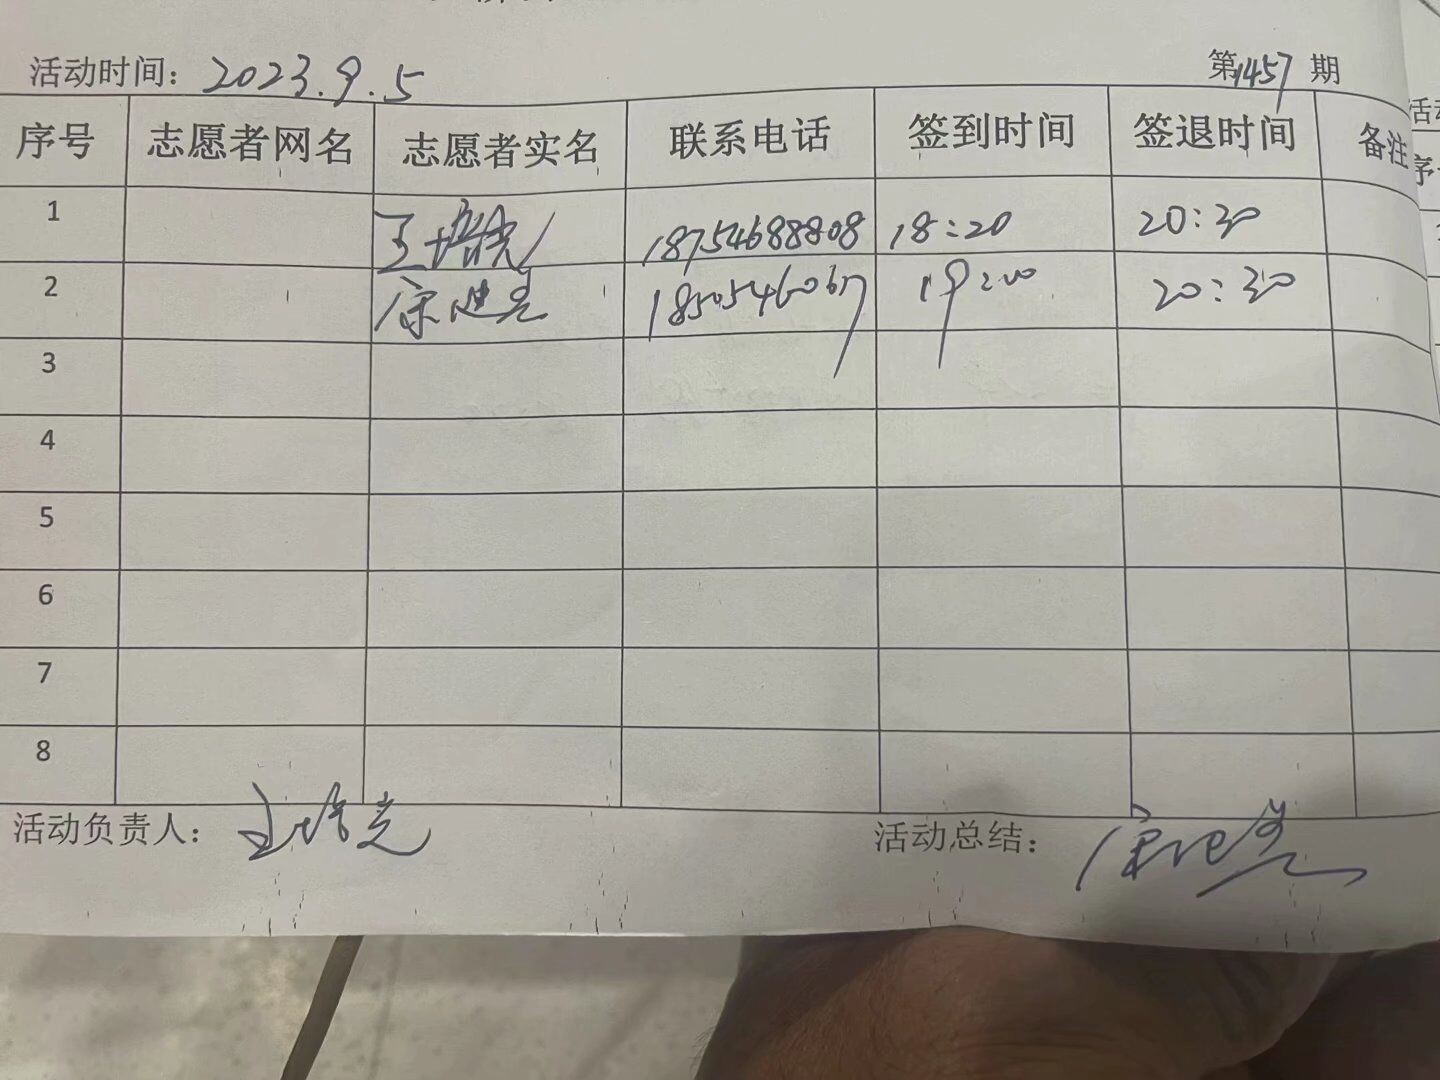 活动时间：2023.9.5 第1457期
序号 志愿者网名 志愿者实名 联系电话 签到时间 签退时间 备注
1 王培光 18754688808 18:20 20:30
2 18505460617 19:00 20:30
3
4
5
6
7
8
活动负责人：王培光 活动总结：